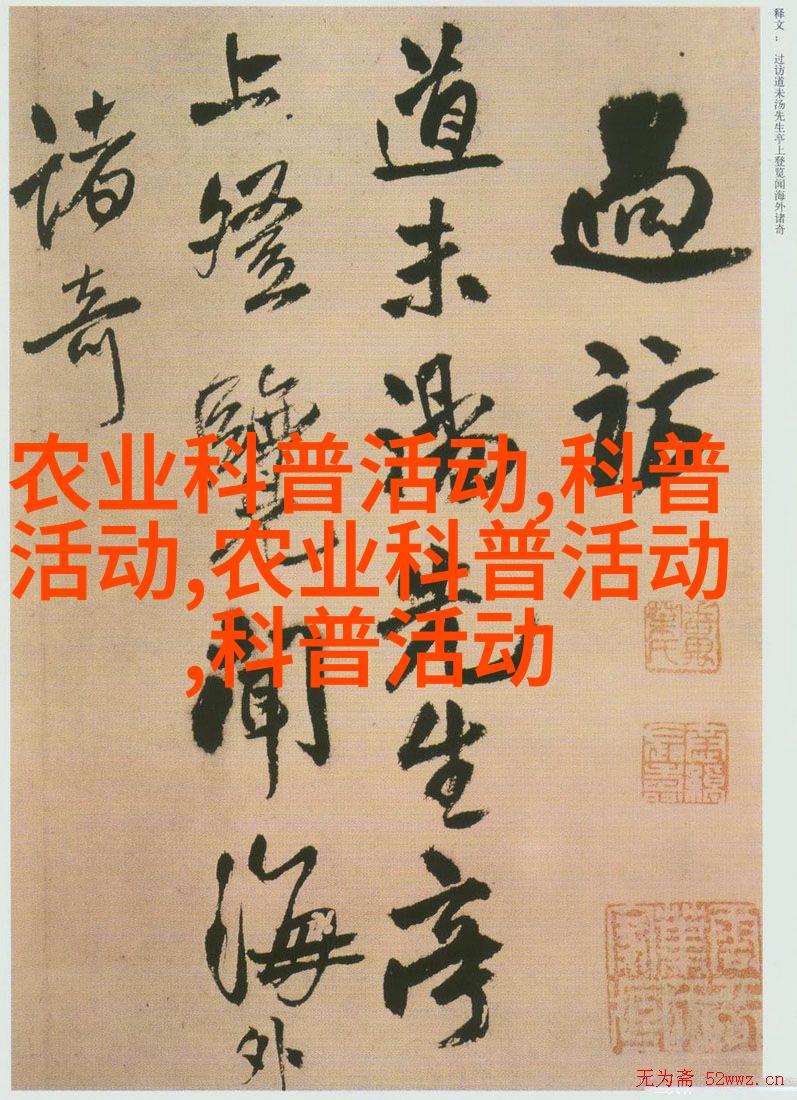 释文： 过访道未汤先生亭上登览闻海外诸奇
過訪
道未湯先生亭
上登覽聞海外
諸奇
农业科普活动,科普
活动,农业科普活动
,科普活动
无为斋 52wwz.cn